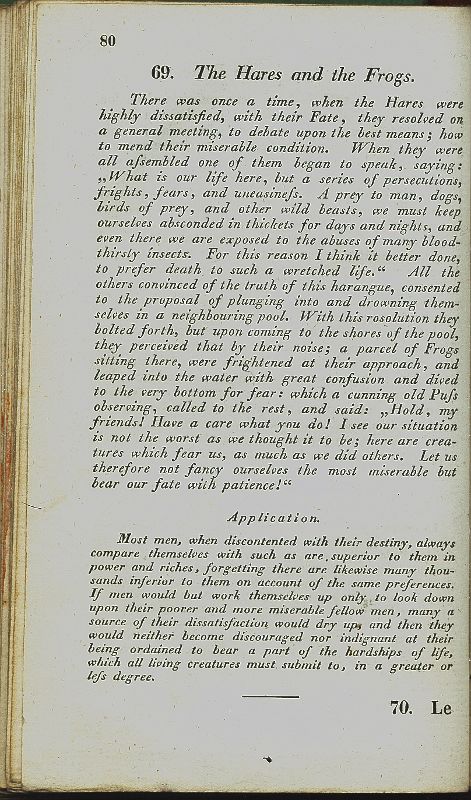 80
69. The Hares and the Frogs.
There was once a time, when the Hares were
highly dissatisfied, with their Fate, they resolved on
a general meeting, to debate upon the best means; how
to mend their miserable condition. When they were
all aſsembled one of them began to speak, saying:
„What is our life here, but a series of persecutions,
frights, fears, and uneasineſs. A prey to man, dogs,
birds of prey, and other wild beasts, we must keep
ourselves absconded in thickets for days and nights, and
even there we are exposed to the abuses of many blood-
thirsty insects. For this reason I think it better done,
to prefer death to such a wretched life.“ All the
others convinced of the truth of this harangue, consented
to the proposal of plunging into and drowning them-
selves in a neighbouring pool. With this rosolution they
bolted forth, but upon coming to the shores of the pool,
they perceived that by their noise; a parcel of Frogs
sitting there, were frightened at their approach, and
leaped into the water with great confusion and dived
to the very bottom for fear: which a cunning old Puſs
observing, called to the rest, and said: „Hold, my
friends! Have a care what you do! I see our situation
is not the worst as we thought it to be; here are crea-
tures which fear us, as much as we did others. Let us
therefore not fancy ourselves the most miserable but
bear our fate with patience!“
Application.
Most men, when discontented with their destiny, always
compare themselves with such as are superior to them in
power and riches, forgetting there are likewise many thou-
sands inferior to them on account of the same preferences.
If men would but work themselves up only to look down
upon their poorer and more miserable fellow men, many a
source of their dissatisfaction would dry up, and then they
would neither become discouraged nor indignant at their
being ordained to bear a part of the hardships of life,
which all living creatures must submit to, in a greater or
leſs degree.
70. Le